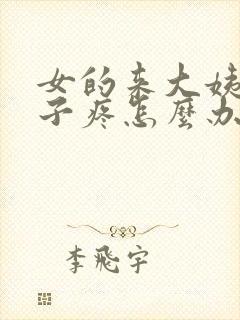 女的来大姨
子疼怎麼办
李飛宇